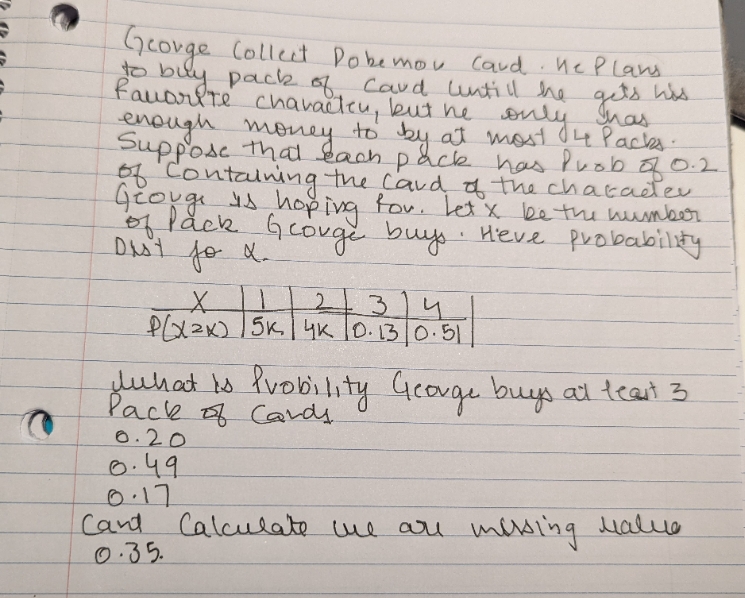 George Collect Pokemou Card. He Plans
to buy pack of Card untill he gets his
Favorite character, but he only has
enough money to by at most 4 Packs.
Suppose that each pack has Prob of 0.2
of Containing the Card of the character
George is hoping for. Let X be the number
of Pack George buys. Here probability
Dist for x.
X | 1 | 2 | 3 | 4
P(X=x) | 5K | 4K | 0.13 | 0.51
What is Probility George buys at least 3
Pack of Cards
0.20
0.49
0.17
Cant Calculate we are missing value
0.35.